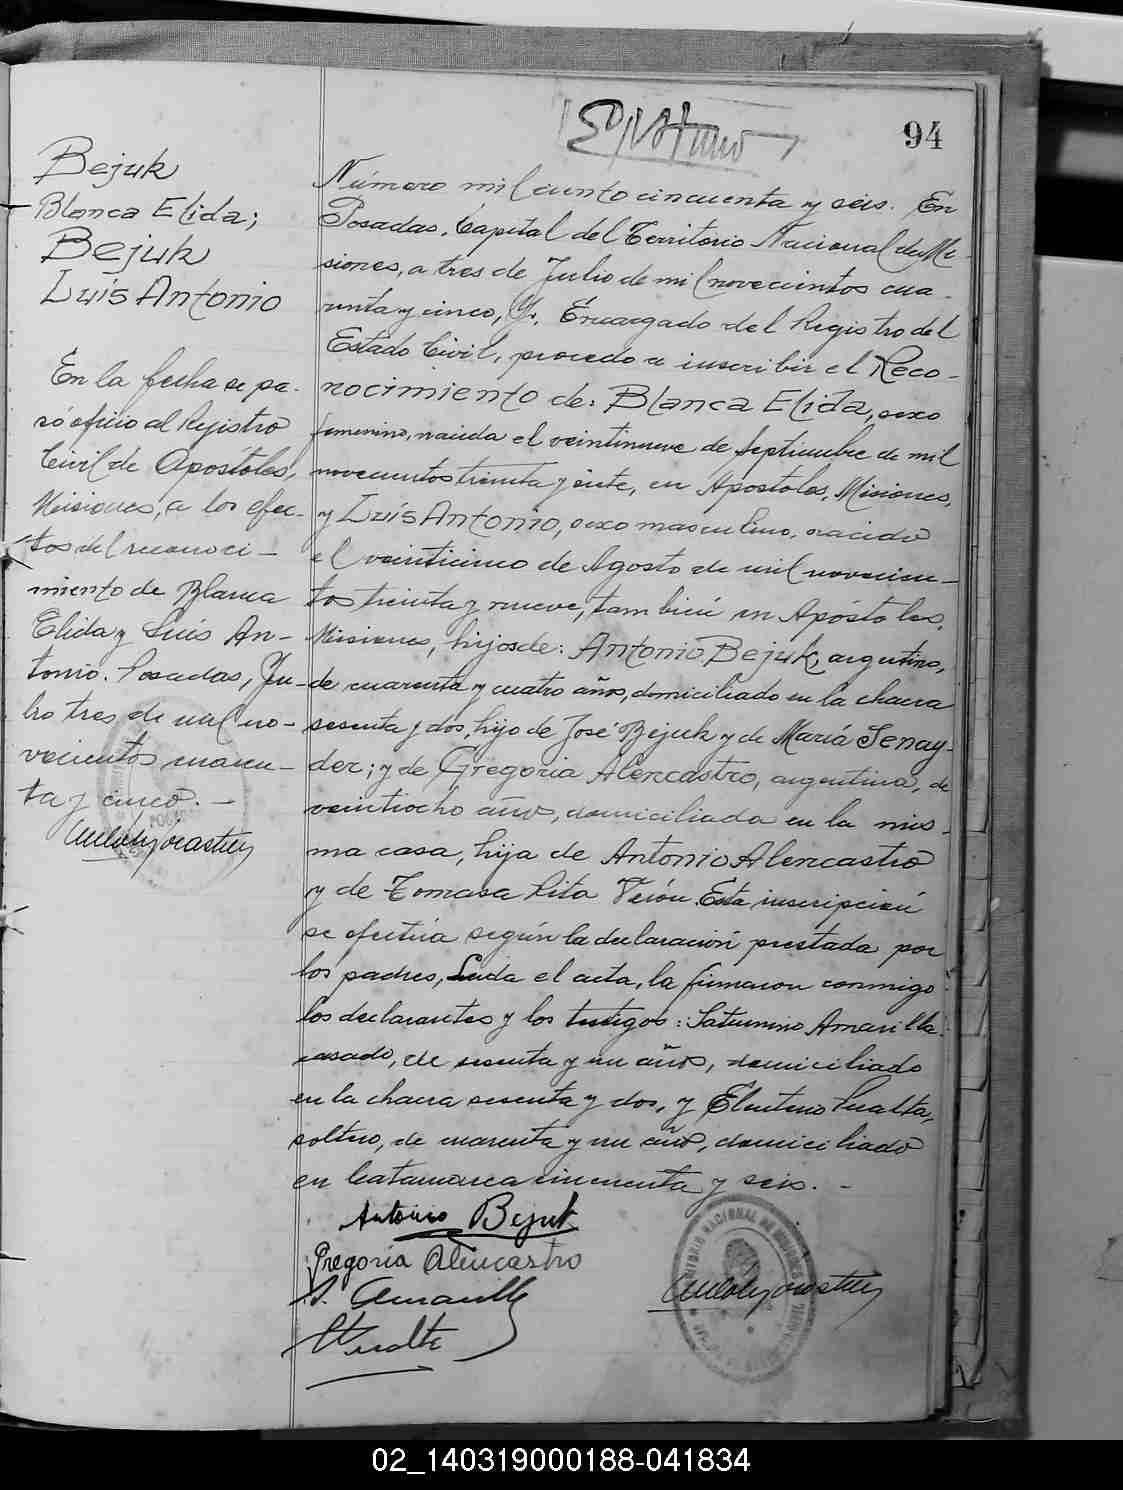 94
Bejuk
Blanca Elida;
Bejuk
Luis Antonio
En la fecha se pa-
só oficio al Registro
Civil de Apóstoles,
Misiones, a los efec-
tos del reconoci-
miento de Blanca
Elida y Luis An-
tonio. Posadas, Ju-
lio tres de mil no-
vecientos cuaren-
ta y cinco. -
Número mil ciento cincuenta y seis. En
Posadas, Capital del Territorio Nacional de Mi-
siones, a tres de Julio de mil novecientos cua-
renta y cinco, Yo, Encargado del Registro del
Estado Civil, procedo a inscribir el Reco-
nocimiento de: Blanca Elida, sexo
femenino, nacida el veintinueve de Septiembre de mil
novecientos treinta y siete, en Apóstoles, Misiones,
y Luis Antonio, sexo masculino, nacido
el veinticinco de Agosto de mil novecien-
tos treinta y nueve, también en Apóstoles,
Misiones, hijos de: Antonio Bejuk, argentino,
de cuarenta y cuatro años, domiciliado en la chacra
sesenta y dos, hijo de José Bejuk y de María Senay-
der; y de Gregoria Alencastro, argentina, de
veintiocho años, domiciliada en la mis-
ma casa, hija de Antonio Alencastro
y de Tomasa Rita Verón. Esta inscripción
se efectúa según la declaración prestada por
los padres, Leida el acta, la firmaron conmigo
los declarantes y los testigos: Saturnino Amarilla,
casado, de sesenta y un años, domiciliado
en la chacra sesenta y dos, y Eleuterio Peralta,
soltero, de cuarenta y un años, domiciliado
en Catamarca cincuenta y seis. -
Antonio Bejuk
Gregoria Alencastro
S. Amarilla
02_140319000188-041834